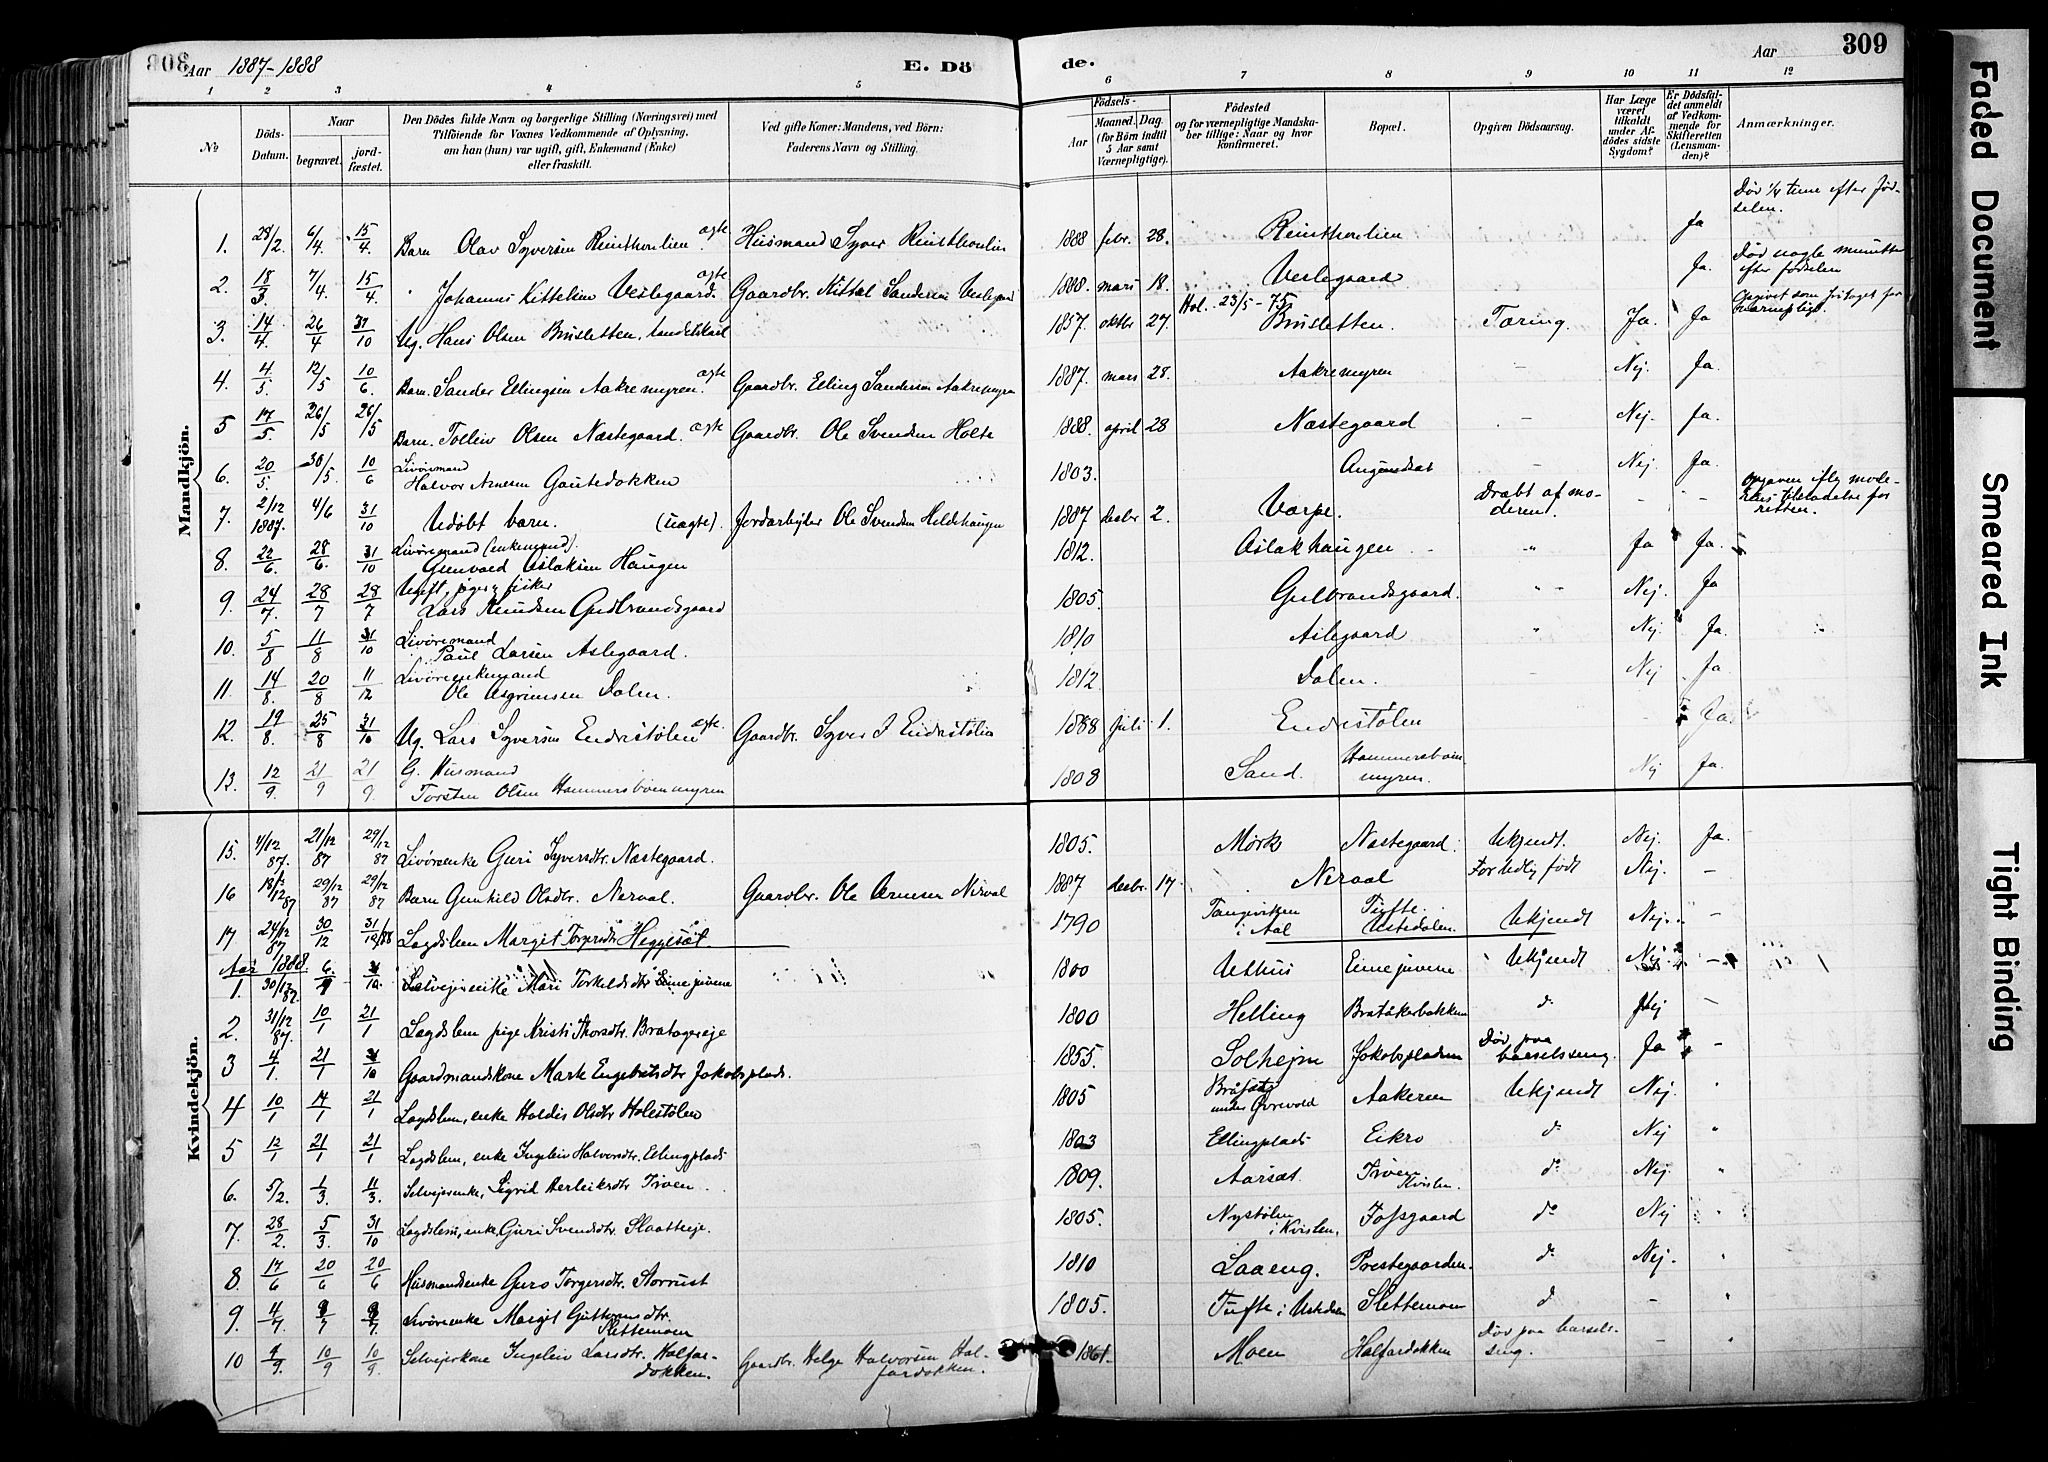 308
Aar 1887-1888
E. Dö
de.
Aar
309
1 2 3 4 5 6 7 8 9 10 11 12
No
Döds-Datum.
Naar
begravet.
jord-fæstet.
Den Dödes fulde Navn og borgerlige Stilling (Næringsvei) med
Tilföiende for Voxnes Vedkommende af Oplysning,
om han (hun) var ugift, gift, Enkemand (Enke)
eller fraskilt.
Ved gifte Koner: Mandens, ved Börn:
Faderens Navn og Stilling.
Födsels-
Aar
Maaned. Dag.
(for Börn indtil
5 Aar samt
Værnepligtige).
Födested
og for værnepligtige Mandska-
ber tillige: Naar og hvor
konfirmeret.
Bopæl.
Opgiven Dödsaarsag.
Har Læge
været
tilkaldt
under Af-
dödes sidste
Sygdom?
Er Dödsfal-
det anmeldt
af Vedkom-
mende for
Skifteretten
(Lensman-
den)?
Anmærkninger.
Mandkjön.
Död 1/4 time efter fød-
selen.
1. 28/2. 6/4 15/4. Barn Olav Syversen Reinthonlien ægte Husmand Syver Reinthonlien 1888 febr. 28. Reinthonlien Ja
Död nogle minutter
efter fødselen
2. 18/3 7/4. 15/4 " Johannes Kittelsen Veslegaard. ægte Gaardbr. Kittel Sandersen Veslegaard 1888. mars 18. Veslegaard Ja.
Hol. 23/5 - 75
Opgivet som fritaget for
værnepligt.
3. 14/4. 26/4 31/10 Ug. Hans Olsen Brusletten, handelskarl 1857 oktbr 27. Brusletten. Tæring. Ja. Ja
4. 4/5 12/5 10/6. Barn. Sander Ellingsen Aakremyren. ægte Gaardbr. Elling Sandersen Aakremyren 1887. mars 28. Aakremyren Nej. Ja.
5 17/5. 26/5 26/5 Barn. Tolleiv Olsen Næstegaard. ægte Gaardbr. Ole Svendsen Holte 1888. april 28 Næstegaard - Nej. Ja.
6. 20/5. 30/5. 10/6 Livöremand
Halvor Arnesen Gautedokken 1803. - Nej. Ja.
7. 2/12 1887. 4/6 31/10 Udöbt barn. (uægte). Jordarbejder Ole Svendsen Heldehaugen 1887 desbr. 2. Varpe. Dræbt af mo-
deren. - -
opgaven iflg mode-
rens tilstaaelse for
retten.
8. 22/6 28/6. 31/10 Livöremand (enkemand).
Gunvald Aslaksen Haugen 1812. Aslakhaugen " Ja Ja.
9. 24/7. 28/7 28/7 Ugift, jæger, fisker
Lars Knudsen Gudbrandsgaard 1805. Gulbrandsgaard. " Nej. Ja
10. 5/8 11/8 31/10 Livöremand
Paul Larsen Aslegaard. 1810 Aslegaard " Nej. Ja.
11. 14/8. 20/8 11/12 Livöreenkemand
Ole Asgrimsen Dalen. 1812. Dalen. Nej Ja
12. 19/8. 25/8 31/10 Ug. Lars Syversen Endrestølen ægte. Gaardbr. Syver J Endrestølen 1888 juli 1. Endrestølen Ja.
13. 12/9. 21/9 21/9. G. Husmand
Torsten Olsen Hammersboenmyren 1808 Sand. Hammersboen-
myren. Nej Ja.
Kvindekjön.
15. 4/12 87. 21/12 87 29/12 87 Livöreenke Guri Syversdtr. Næstegaard. 1805. Mörk Næstegaard. Ukjendt. Nej. Ja.
16 18/12 87 29/12 87 29/12 87 Barn Gunhild Olsdtr. Neraal. Gaardbr. Ole Arnesen Neraal 1887 desbr. 17. Neraal For tidlig född Nej. -
17 24/12 87 30/12 31/10/88 Lægdslem Margit Torgersdtr Heggesæt 1790 Tangeviken
i Aal Tufte
Ustedalen. Ukjendt Nej. -
Aar 1888.
1. 30/12 87. 6/1 31/10. Selvejerenke Mari Torkildsdtr Einejuvene 1800 Uthus Einejuvene Ukjendt Nej. -
2. 31/12 87. 10/1 21/1 Lægdslem pige Kristi Thorsdtr. Bratagereje 1800 Helling Bratåkerbakken do Nej -
3 4/1. 21/1 31/10 Gaardmandskone Marte Engebretsdtr Jakobsplads. 1855. Solhejm Jakobspladsen Död paa
barselseng. Ja -
4 10/1 14/1 21/1 Lægdslem, enke Haldis Olsdtr Holestölen 1805
under Övrevold Aakeren Ukjendt Nej. "
5 12/1 21/1 21/1 Lægdslem, enke Ingeleiv Halvorsdtr. Ellingplads 1803 Ellingplads Eikro do Nej "
6. 5/2. 1/3. 11/3. Selvejerenke, Sigrid Herleiksdtr Troen 1809. Aarsæt. Troen
Kvislen. do Nej. "
7. 28/2. 5/3. 31/10 Lægdslem, enke, Guri Svendsdtr. Slaatteeje. 1805. Nystölen
i Kvislen. Fossgaard do Nej "
8 17/6 20/6 20/6 Husmandsenke Guro Torgersdtr. Storrust 1810 Laaeng. Prestegaarden. do Nej. "
9. 4/7. 9/7 9/7 Livöreenke Margit Guttormsdtr.
Slettemoen 1805. Tufte i Ustedalen Slettemoen do - "
10 4/9. 10/9 10/9 Selvejerkone Ingeleiv Larsdtr. Halfar-
dokken. Gaardbr. Helge Halvorsen Hal-
fardokken. 1861. Moen Halfardokken Död paa barsel-
seng. - "
Faded Document
Smeared Ink
Tight Binding